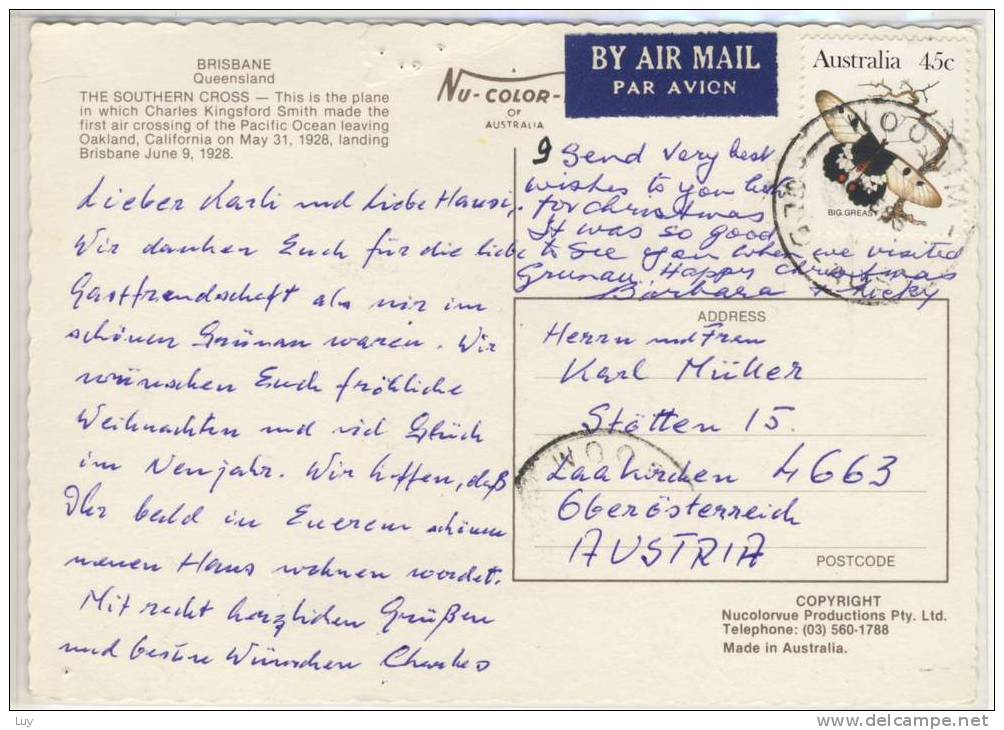 BRISBANE
Queensland
THE SOUTHERN CROSS — This is the plane
in which Charles Kingsford Smith made the
first air crossing of the Pacific Ocean leaving
Oakland, California on May 31, 1928, landing
Brisbane June 9, 1928.
NU-COLOR-
OF
AUSTRALIA
BY AIR MAIL
PAR AVION
Australia 45c
BIG GREAS
WOO
Lieber Karli und Liebe Hansi,
Wir danken Euch für die liebe
Gastfreundschaft als wir im
schönen Grünau waren. Wir
wünschen Euch fröhliche
Weihnachten und viel Glück
im Neujahr. Wir hoffen, daß
Ihr bald in Eurem schönen
neuen Haus wohnen werdet.
Mit recht herzlichen Grüßen
und besten Wünschen Charles
9 Send very best
wishes to you both
for christmas
It was so good
to see you when we visited
Grunau. Happy Christmas
Barbara + Nicky
ADDRESS
Herrn und Frau
Karl Müller
Stötten 15.
Laakirchen 4663
Oberösterreich
AUSTRIA
POSTCODE
WOO
COPYRIGHT
Nucolorvue Productions Pty. Ltd.
Telephone: (03) 560-1788
Made in Australia.
Luy
delcampe.net